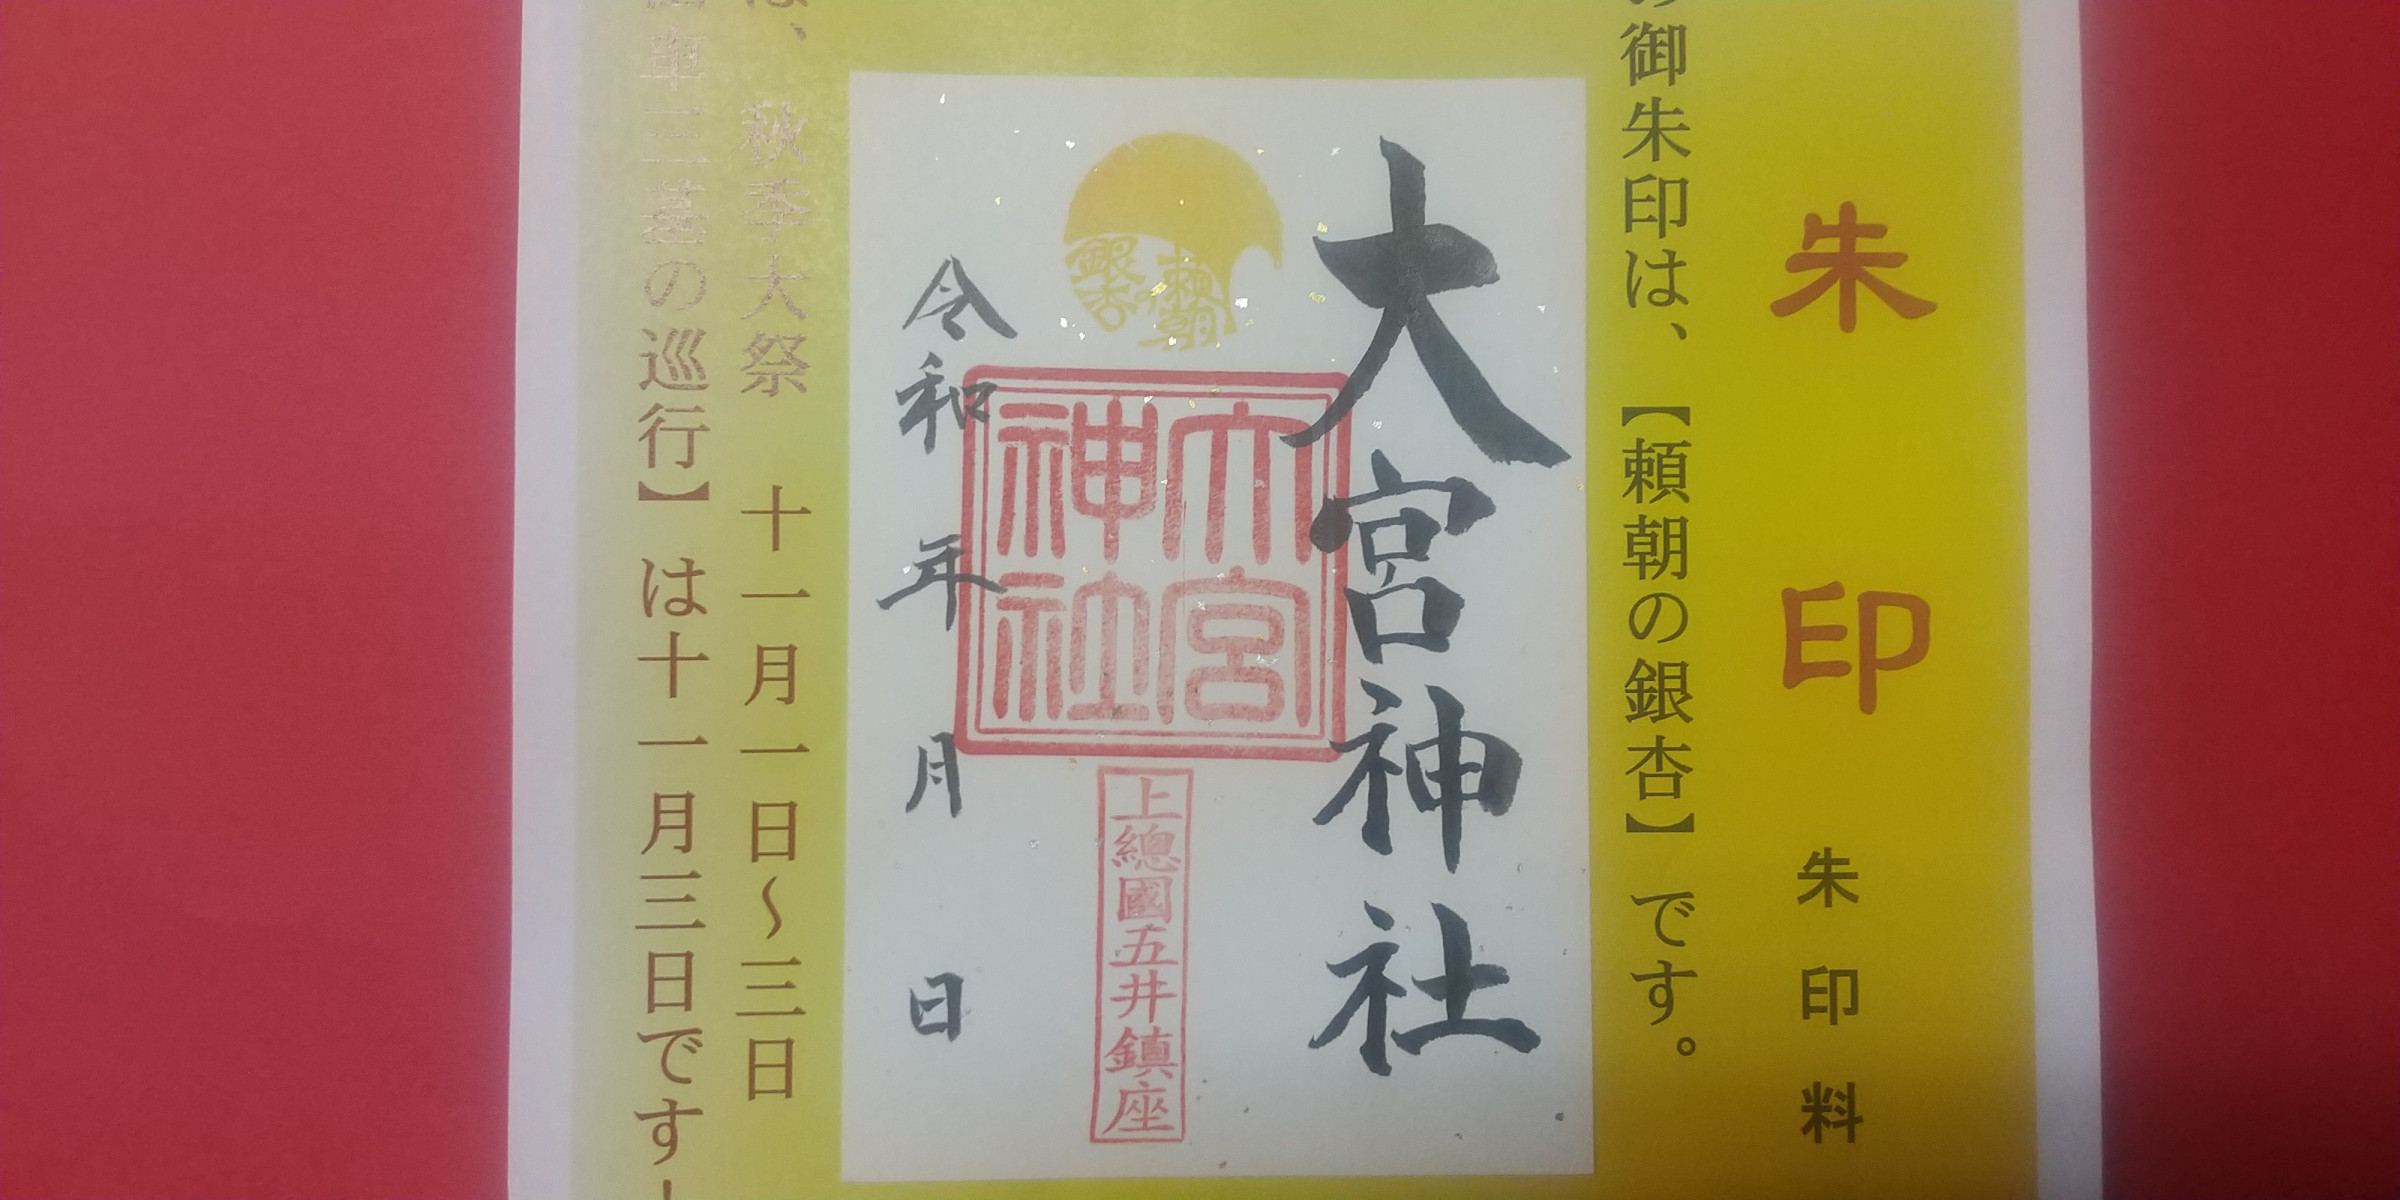 朱印 朱印料
御朱印は、【頼朝の銀杏】です。
大宮神社
頼朝の
銀杏
大宮
神社
上總國五井鎮座
令和 年 月 日
は、 秋季大祭 十一月一日～三日
車三基の巡行】は十一月三日です